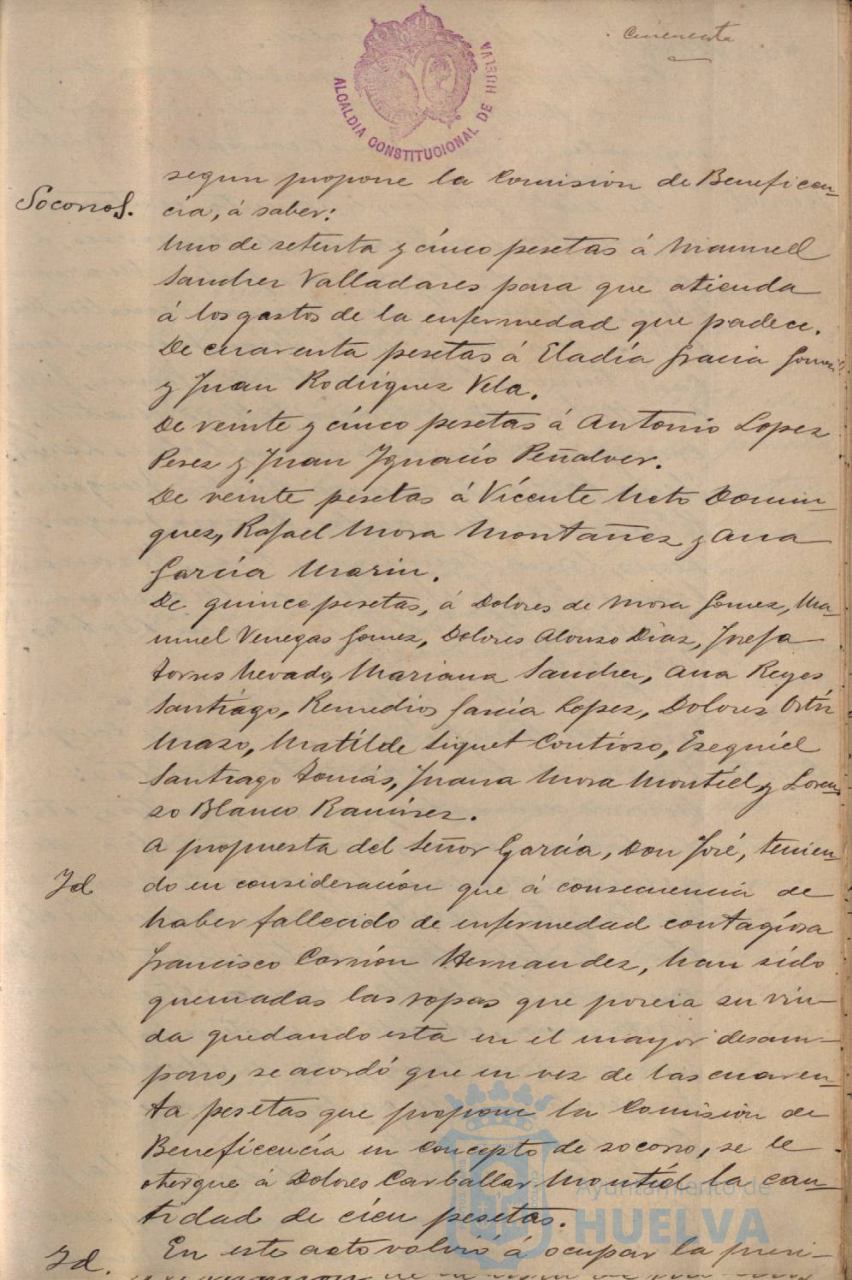 Cincuenta
ALCALDIA CONSTITUCIONAL DE HUELVA
segun propone la Comisión de Beneficen-
Socorros.
cia, á saber:
Uno de setenta y cinco pesetas á Manuel
Sanchez Valladares para que atienda
á los gastos de la enfermedad que padece.
De cuarenta pesetas á Eladía Gracia Gomez
y Juan Rodriguez Vela.
De veinte y cinco pesetas á Antonio Lopez
Perez y Juan Ignacio Peñalver.
De veinte pesetas á Vicente Neto Domin-
guez, Rafael Mora Montañez y Ana
García Marin.
De quince pesetas, á Dolores de Mora Gomez, Ma-
nuel Venegas Gomez, Dolores Alonso Diaz, Josefa
Torres Nevado, Mariana Sanchez, Ana Reyes
Santiago, Remedios García Lopez, Dolores Ortiz
Mazo, Matilde Contioso, Esequiel
Santiago Tomás, Juana Mora Montiel, y Loren-
zo Blanco Ramirez.
A propuesta del Señor García, Don José, tenien-
Id
do en consideración que á consecuencia de
haber fallecido de enfermedad contagiosa
Francisco Carrión Hernandez, han sido
quemadas las ropas que poseia su viu-
da quedando esta en el mayor desam-
paro, se acordó que en vez de las cuaren-
ta pesetas que propone la Comisión de
Beneficencia en concepto de socorro, se le
otorgue á Dolores Carballar Montiel la can-
tidad de cien pesetas.
Ayuntamiento de
HUELVA
Id.
En este acto volvió á ocupar la presi-